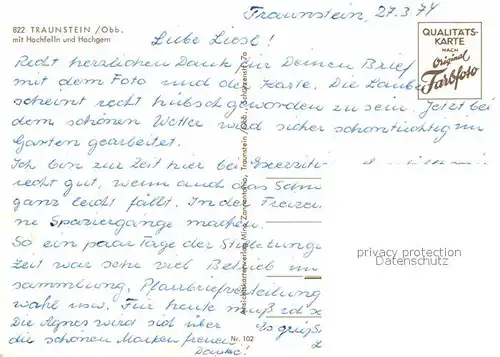 822 TRAUNSTEIN /Obb.
mit Hochfelln und Hochgern
Traunstein, 27.3.74
QUALITÄTS-
KARTE
NACH
Original
Farbfoto
Liebe Liesl!
Recht herzlichen Dank für Deinen Brief
mit dem Foto und der Karte. Die Laube
scheint recht hübsch geworden zu sein. Jetzt bei
dem schönen Wetter wird sicher schon tüchtig im
Garten gearbeitet.
Ich bin zur Zeit hier bei Exerziti
recht gut, wenn auch das Schw
ganz leicht fällt. In der Freizei
ne Spaziergänge machen.
So ein paar Tage der
Zeit war sehr viel Betrieb
sammlung, Pfarrbriefverteilung
wahl usw. Für heute muß
Die Agnes wird sich über
die schönen Marken freuen
Danke!
Es grüß
Ansichtskartenverlag Traunstein/Obb.
Nr. 102
privacy protection
Datenschutz